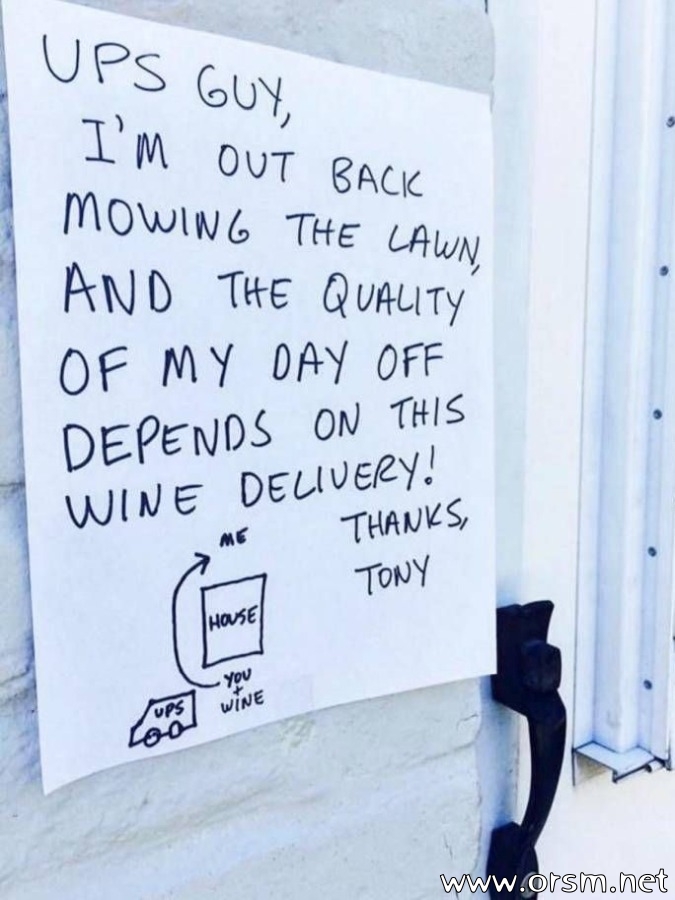 UPS GUY,
I'M OUT BACK
MOWING THE LAWN,
AND THE QUALITY
OF MY DAY OFF
DEPENDS ON THIS
WINE DELIVERY!
THANKS,
TONY
ME
HOUSE
YOU
+
WINE
UPS
www.orsm.net